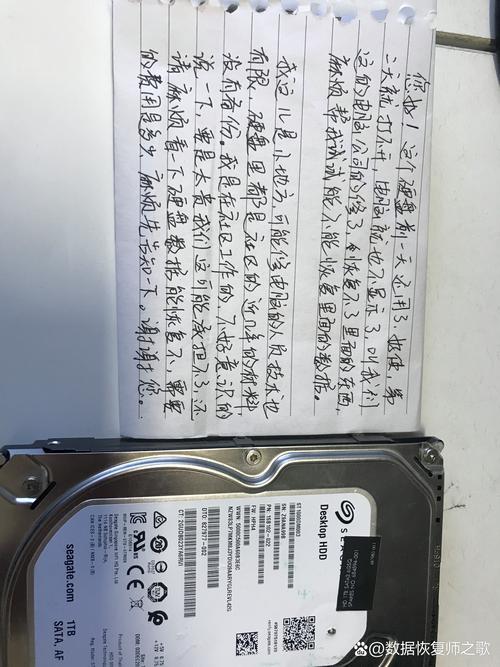 您好！这个硬盘前一天还用了，好使，第
二天就打不开，电脑就也不显示了，叫我们
这的电脑公司的修了，都恢复不了里面的东西，
麻烦帮我试试能不能恢复里面的数据。
我这儿是小地方，可能修电脑的人员技术也
有限，硬盘里都是社区的近几年的材料
没有备份。我是在社区工作的，不好意思的
说一下，要是太贵我们这可能承担不了，还
请麻烦看一下硬盘数据能恢复不，需要
的费用是多少，麻烦先告知一下。谢谢您。
Desktop HDD
ST1000DM003
FW: HPH4
seagate.com
1TB
SATA, AF
verify.seagate.com
头条 @数据恢复师之歌